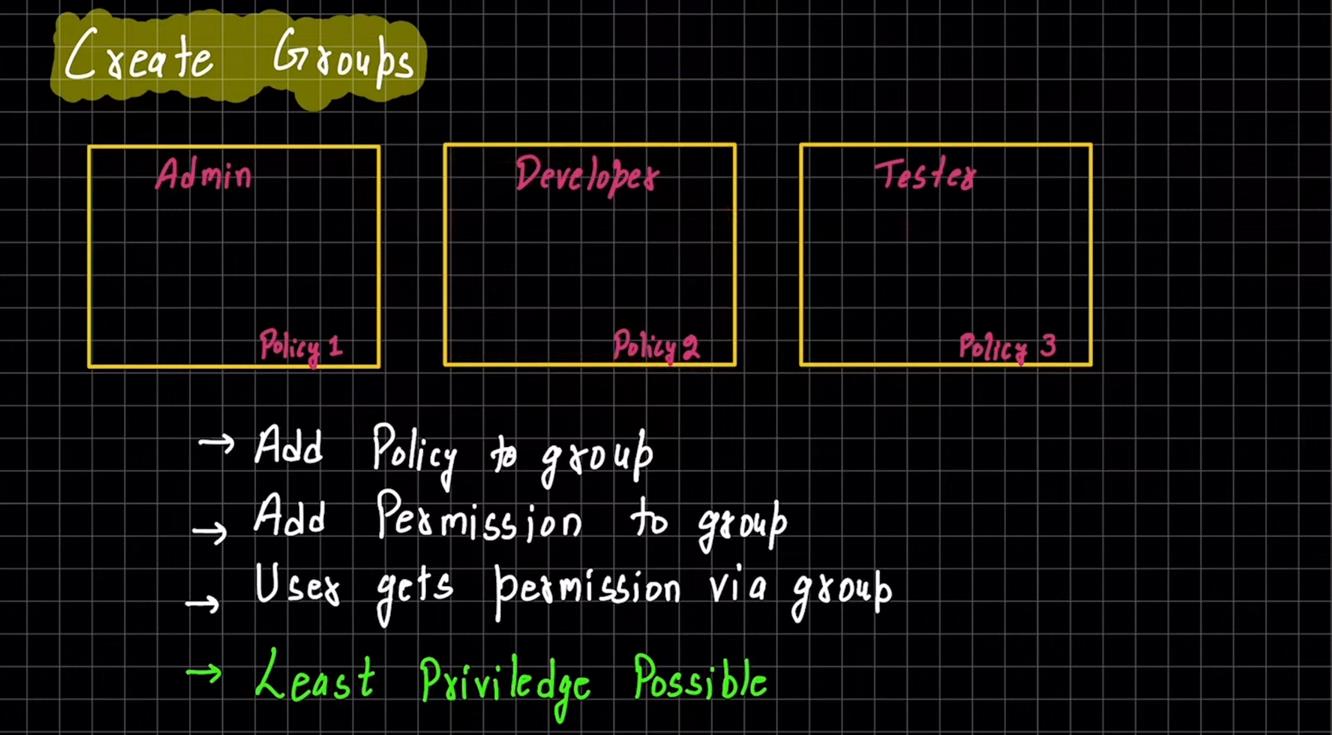 Create Groups
Admin
Policy 1
Developer
Policy 2
Tester
Policy 3
→ Add Policy to group
→ Add Permission to group
→ User gets permission via group
→ Least Priviledge Possible